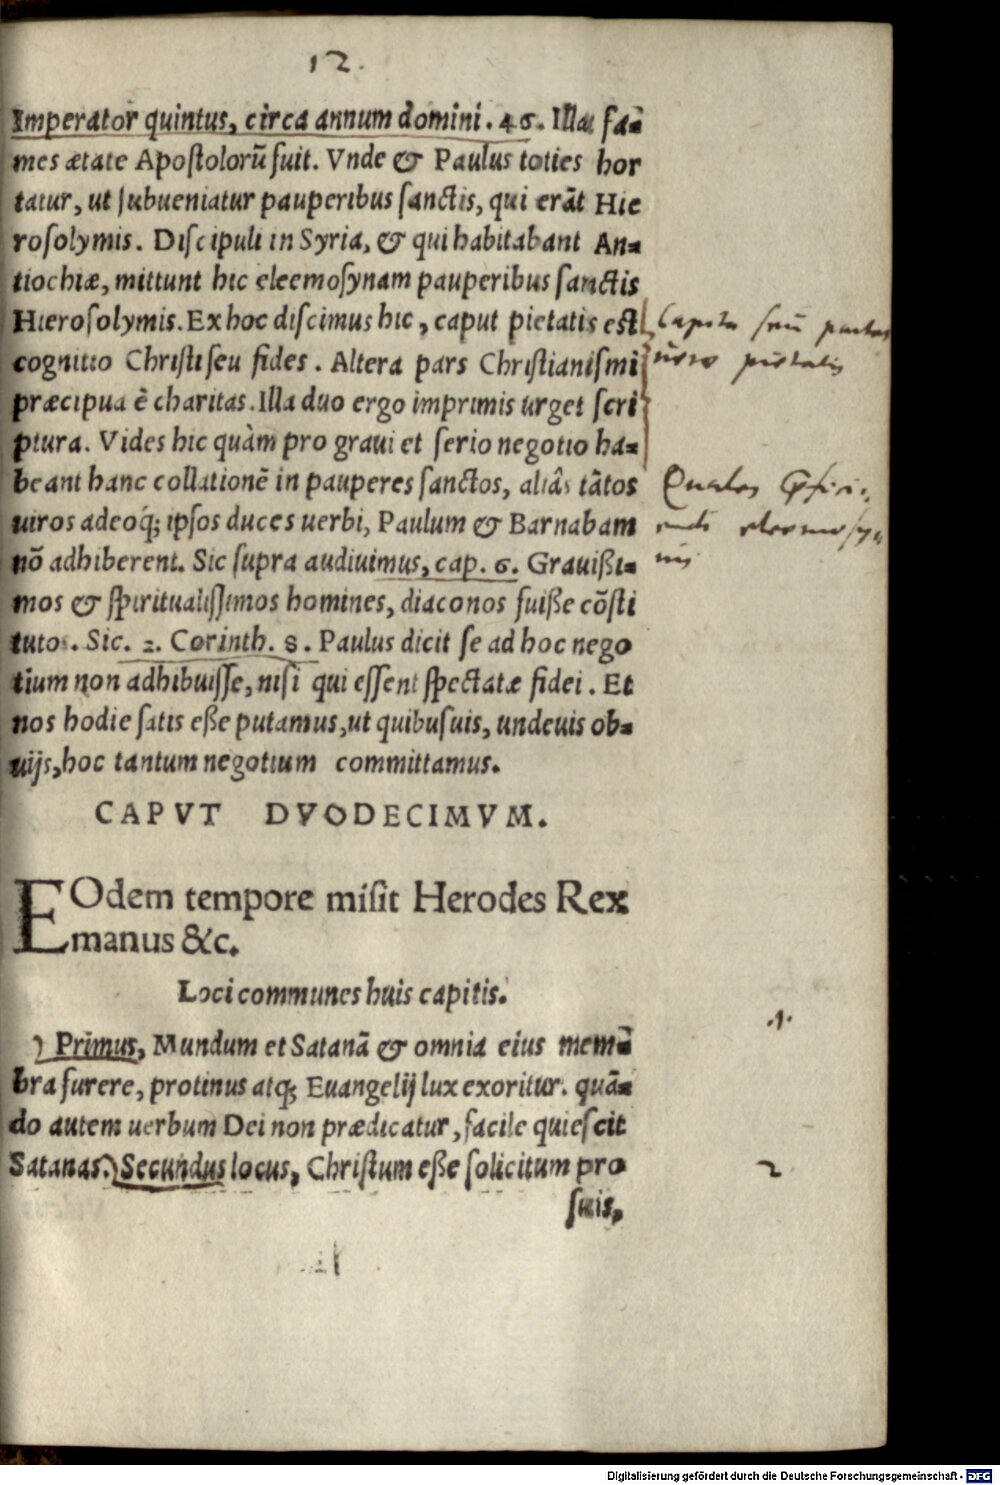 12.
Imperator quintus, circa annum domini . 46. Illa fa=
mes ætate Apostolorũ fuit. Vnde & Paulus toties hor
tatur, ut subueniatur pauperibus sanctis, qui erãt Hie
rosolymis. Discipuli in Syria, & qui habitabant An=
tiochiæ, mittunt hic eleemosynam pauperibus sanctis
Hierosolymis. Ex hoc discimus hic, caput pietatis est
cognitio Christi seu fides. Altera pars Christianismi
præcipua ẽ charitas. Illa duo ergo imprimis urget scri
ptura. Vides hic quàm pro graui et serio negotio ha=
beant hanc collationẽ in pauperes sanctos, aliâs tãtos
uiros adeoq; ipsos duces uerbi, Paulum & Barnabam
nõ adhiberent. Sic supra audiuimus, cap. 6. Grauißi=
mos & spiritualissimos homines, diaconos fuiße cõsti
tutos. Sic. 2. Corinth. 8. Paulus dicit se ad hoc nego
tium non adhibuisse, nisi qui essent spectatæ fidei. Et
nos hodie satis eße putamus, ut quibusuis, undeuis ob=
uijs, hoc tantum negotium committamus.
CAPVT DVODECIMVM.
EOdem tempore misit Herodes Rex
manus &c.
Loci communes huis capitis.
Primus, Mundum et Satanã & omnia eius mem=
bra furere, protinus atq; Euangelij lux exoritur. quã=
do autem uerbum Dei non prædicatur, facile quiescit
Satanas. Secundus locus, Christum eße solicitum pro
suis,
Capita seu partes
pietatis
Quales
eleemosy
nis
.1.
2
Digitalisierung gefördert durch die Deutsche Forschungsgemeinschaft - DFG